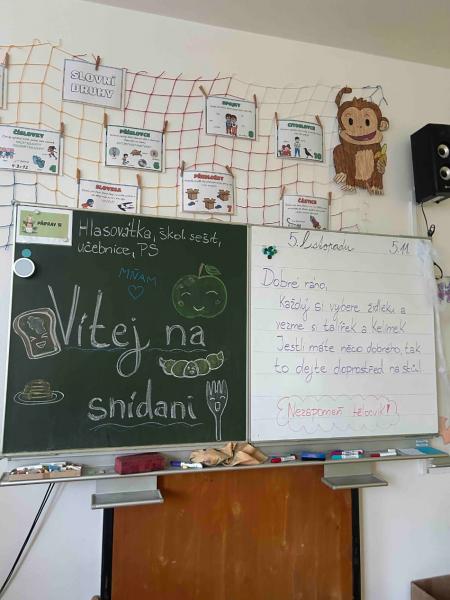 SLOVNÍ
DRUHY
SPOJKY
8
CITOSLOVCE
10
ČÍSLOVKY
PŘÍSLOVCE
6
SLOVESA
PŘEDLOŽKY
7
ČÁSTICE
PŘIPRAV SI
Hlasovátka, škol. sešit,
učebnice, PS
MŇAM
Vítej na
snídani
5. listopadu 5.11.
Dobré ráno,
Každý si vybere židličku a
vezme si talířek a kelímek
Jestli máte něco dobrého, tak
to dejte doprostřed na stůl.
Nezapomeň tělocvik!